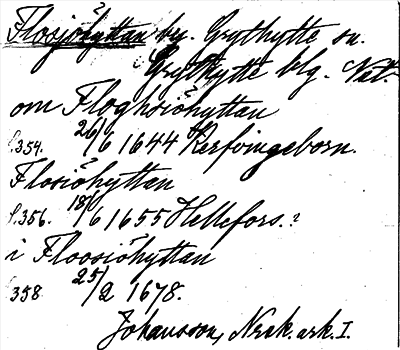 Flosjöhyttan by. Grythytte sn.
Grythytte blg. Näs.
om Floghsiöhyttan
f.354. 26/6 1644 Kerfvingeborn.
Flosiöhyttan
f.356. 18/6 1655 Hellefors.?
i Floosiöhyttan
358 25/2 1678.
Johansson, Nrak. ark. I.